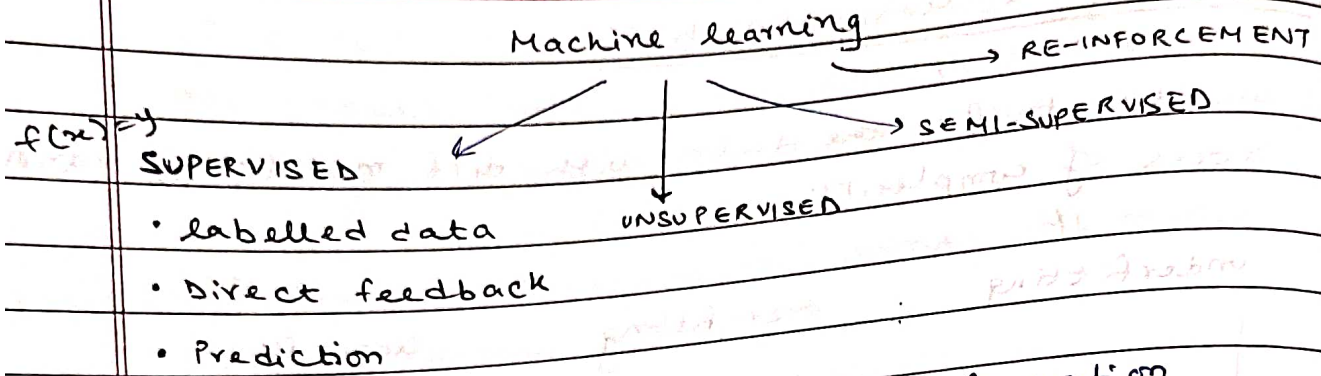 Machine learning
RE-INFORCEMENT
f(x)=y
SEMI-SUPERVISED
SUPERVISED
UNSUPERVISED
• labelled data
• Direct feedback
• Prediction